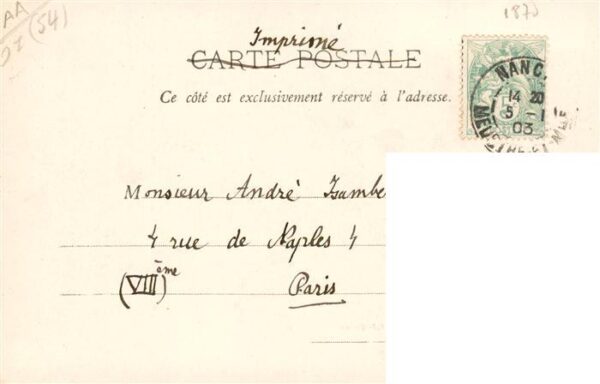 AA (54)
1873
Imprimé
CARTE POSTALE
Ce côté est exclusivement réservé à l'adresse.
NANC
14 20
5 - 1
03
MEU
Monsieur André Isambe
4 rue de Naples 4
(VIIIème Paris